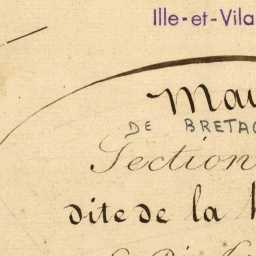 Ille-et-Vila
Mau
DE BRETAG
Section
dite de la